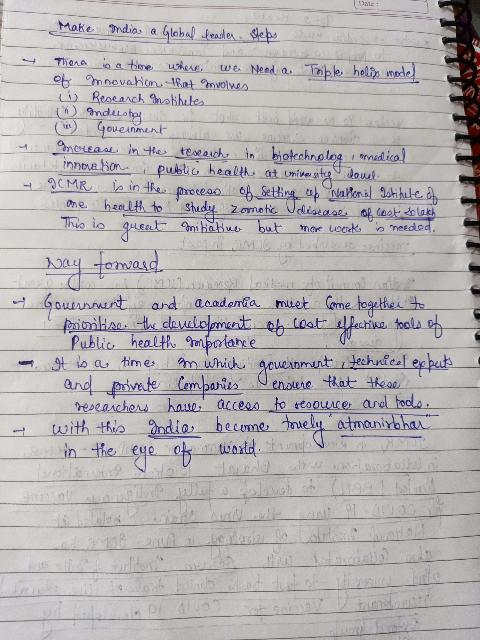 Date :
Make India a Global leader - Steps
→ There is a time where we Need a Triple helix model
of Innovation that Involves
(i) Research Institutes
(ii) Industry
(iii) Government
→ Increase in the research in biotechnology, medical
innovation, public health at university level.
→ ICMR is in the process of setting up National Istitute of
one health to study zoonotic disease of cost
This is great initiative but more work is needed.
Way forward
→ Government and academia meet Come together to
prioritise the development of cost effective tools of
Public health importance
→ It is a time in which government, technical experts
and private Companies ensure that these
researchers have access to resource and tools.
→ with this India become truely 'atmanirbhar'
in the eye of world.